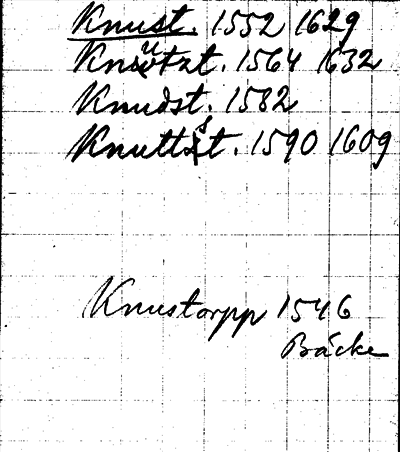 Knust. 1552 1629
Knutzt. 1564 1632
Knudst. 1582
Knuttst. 1590 1609
Knustorpp 1546
Bäcke